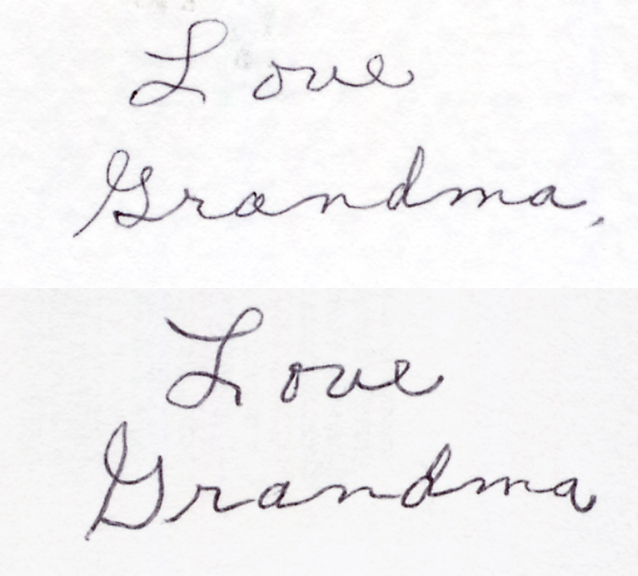 Love
Grandma.
Love
Grandma